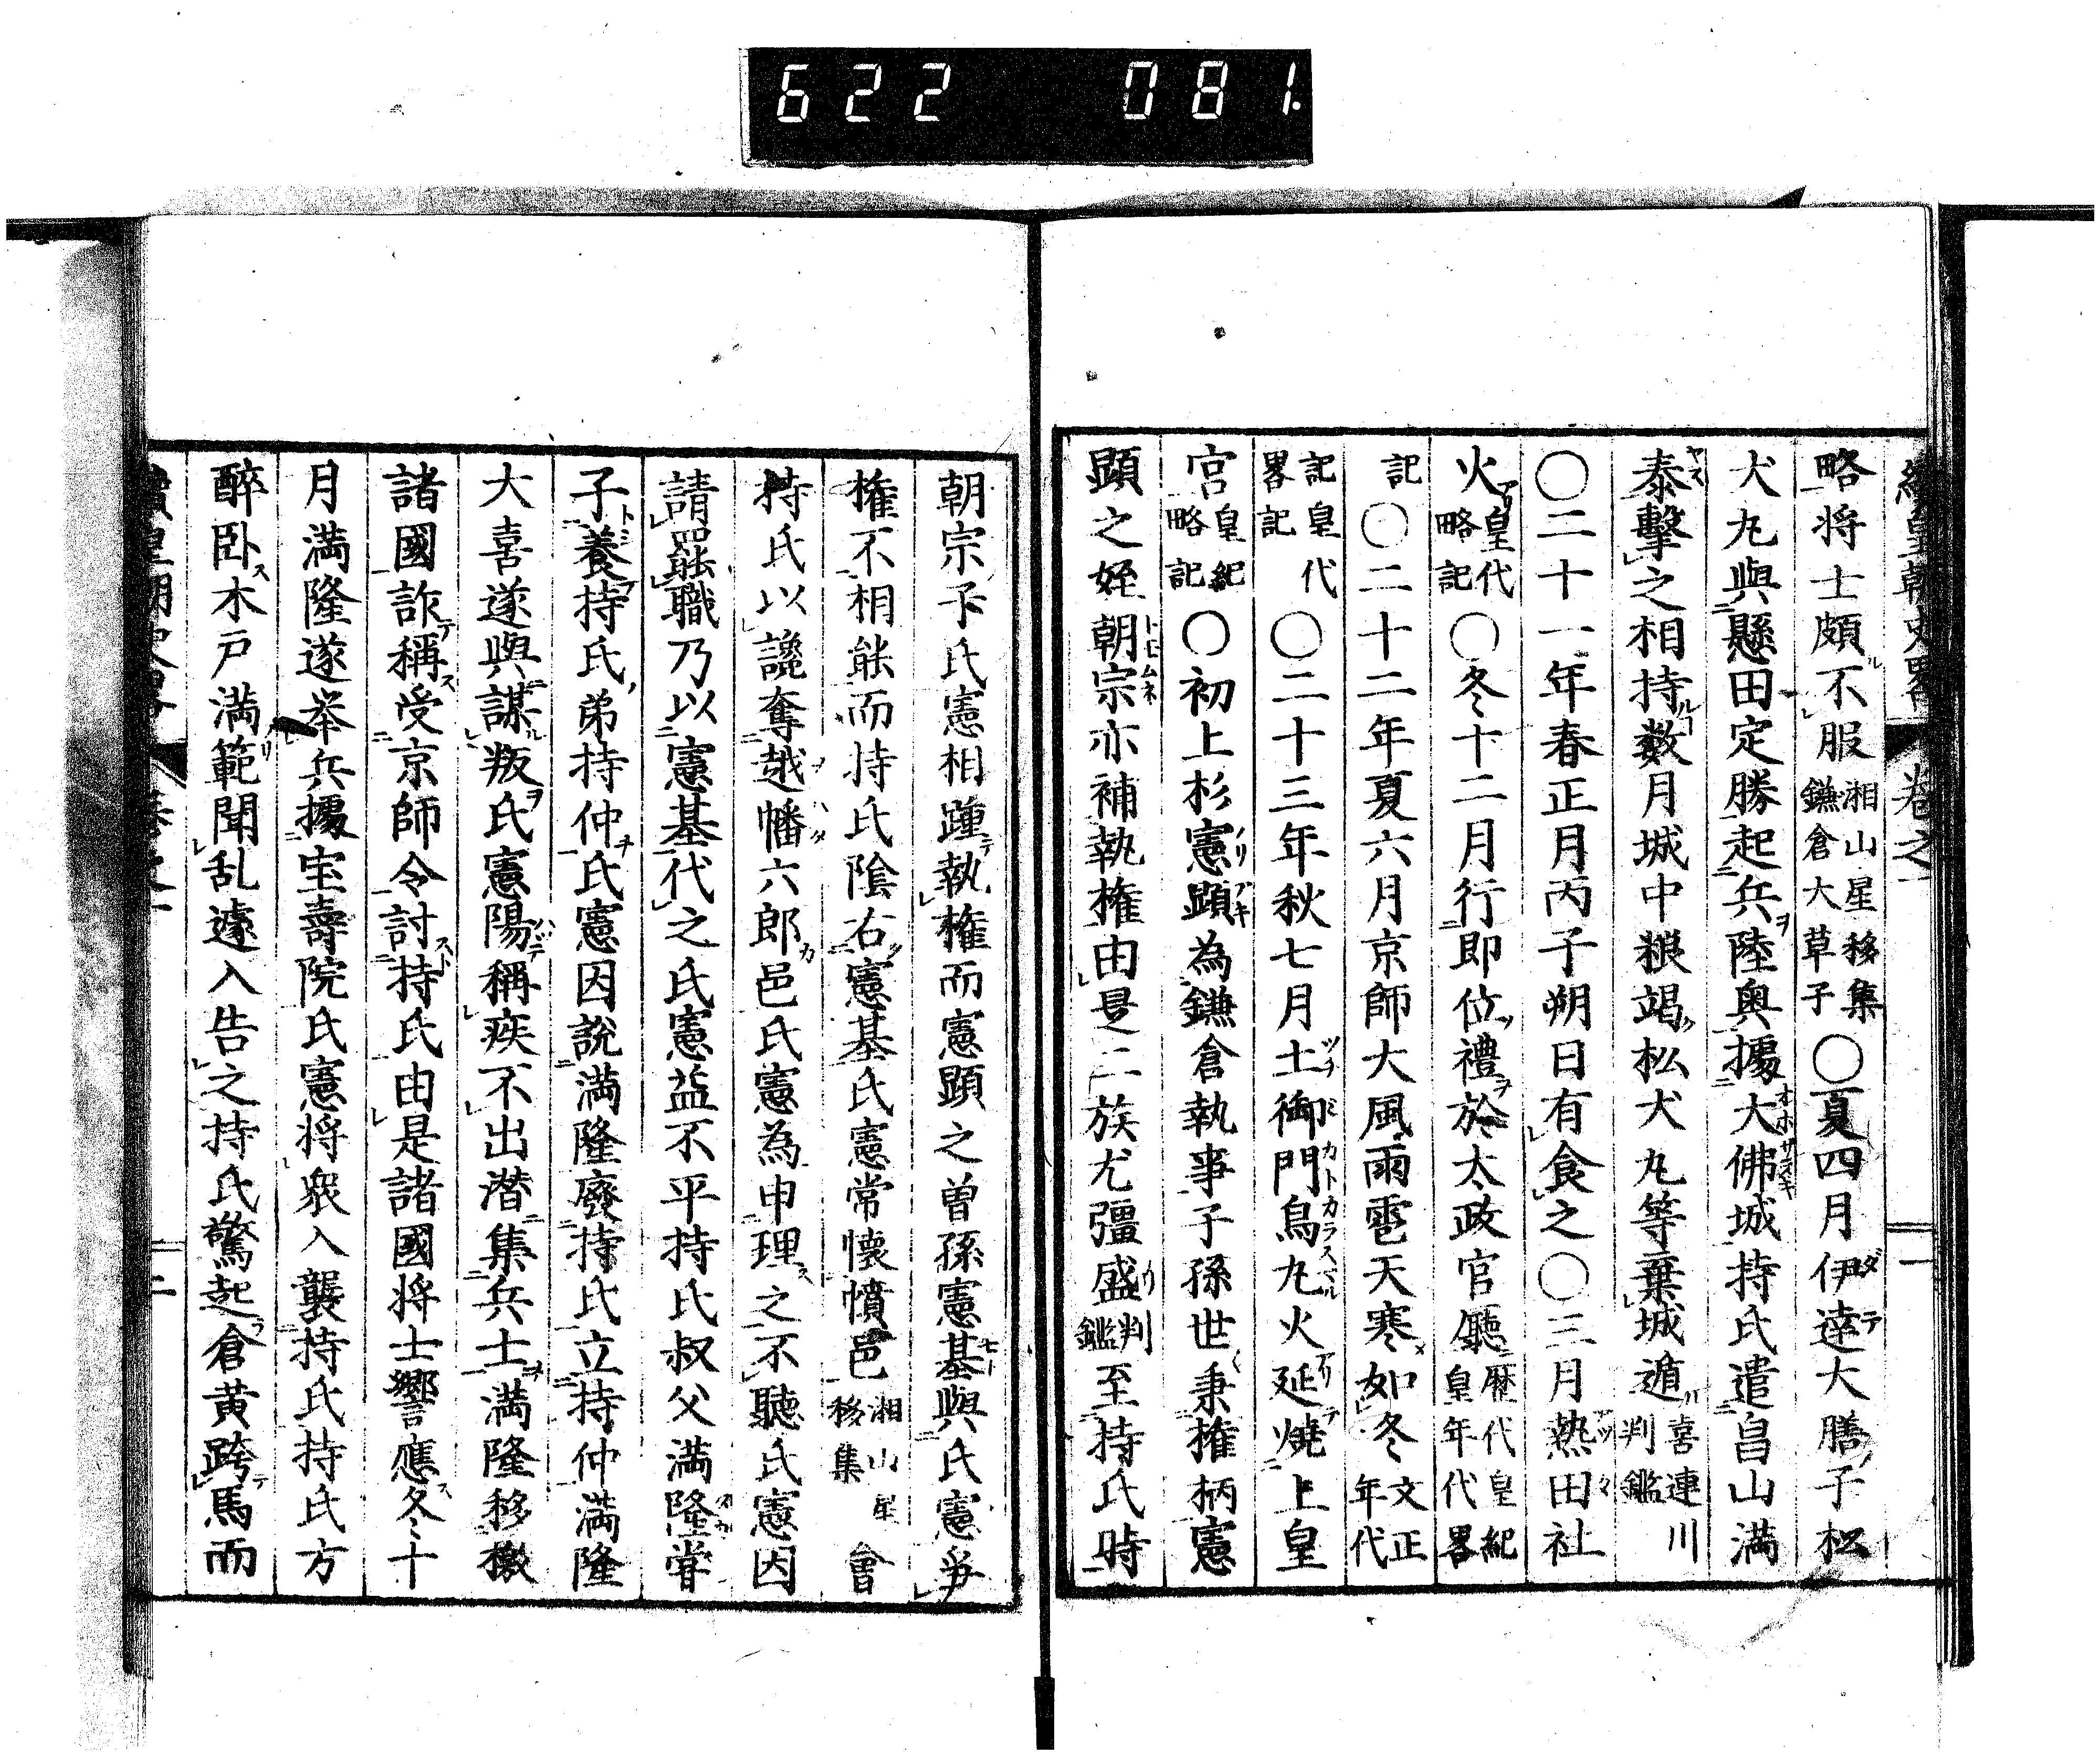 622 081.
續皇朝史畧 卷之一 一
略将士頗不服湘山星移集鎌倉大草子〇夏四月伊達大膳子松
犬丸與懸田定勝起兵陸奥據大佛城持氏遣畠山満
泰擊之相持数月城中粮竭松犬丸等棄城遁喜連川判鑑
〇二十一年春正月丙子朔日有食之〇三月熱田社
火皇代略記〇冬十二月行即位禮於太政官廳歴代皇紀皇年代畧
記〇二十二年夏六月京師大風雨雹天寒如冬文正年代
記皇代畧記〇二十三年秋七月土御門烏丸火延燒上皇
宮皇紀略記〇初上杉憲顕為鎌倉執事子孫世秉権柄憲
顕之姪朝宗亦補執権由是二族尤彊盛判鑑至持氏時
朝宗子氏憲相踵執権而憲顕之曽孫憲基與氏憲爭
権不相能而持氏陰右憲基氏憲常懐憤邑湘山星移集會
持氏以讒奪越幡六郎邑氏憲為申理之不聴氏憲因
請罷職乃以憲基代之氏憲益不平持氏叔父満隆甞
子養持氏弟持仲氏憲因説満隆廢持氏立持仲満隆
大喜遂與謀叛氏憲陽稱疾不出潜集兵士満隆移檄
諸國詐稱受京師令討持氏由是諸國将士響應冬十
月満隆遂举兵據宝壽院氏憲将衆入襲持氏持氏方
醉卧木戸満範聞乱遽入告之持氏驚起倉黄跨馬而